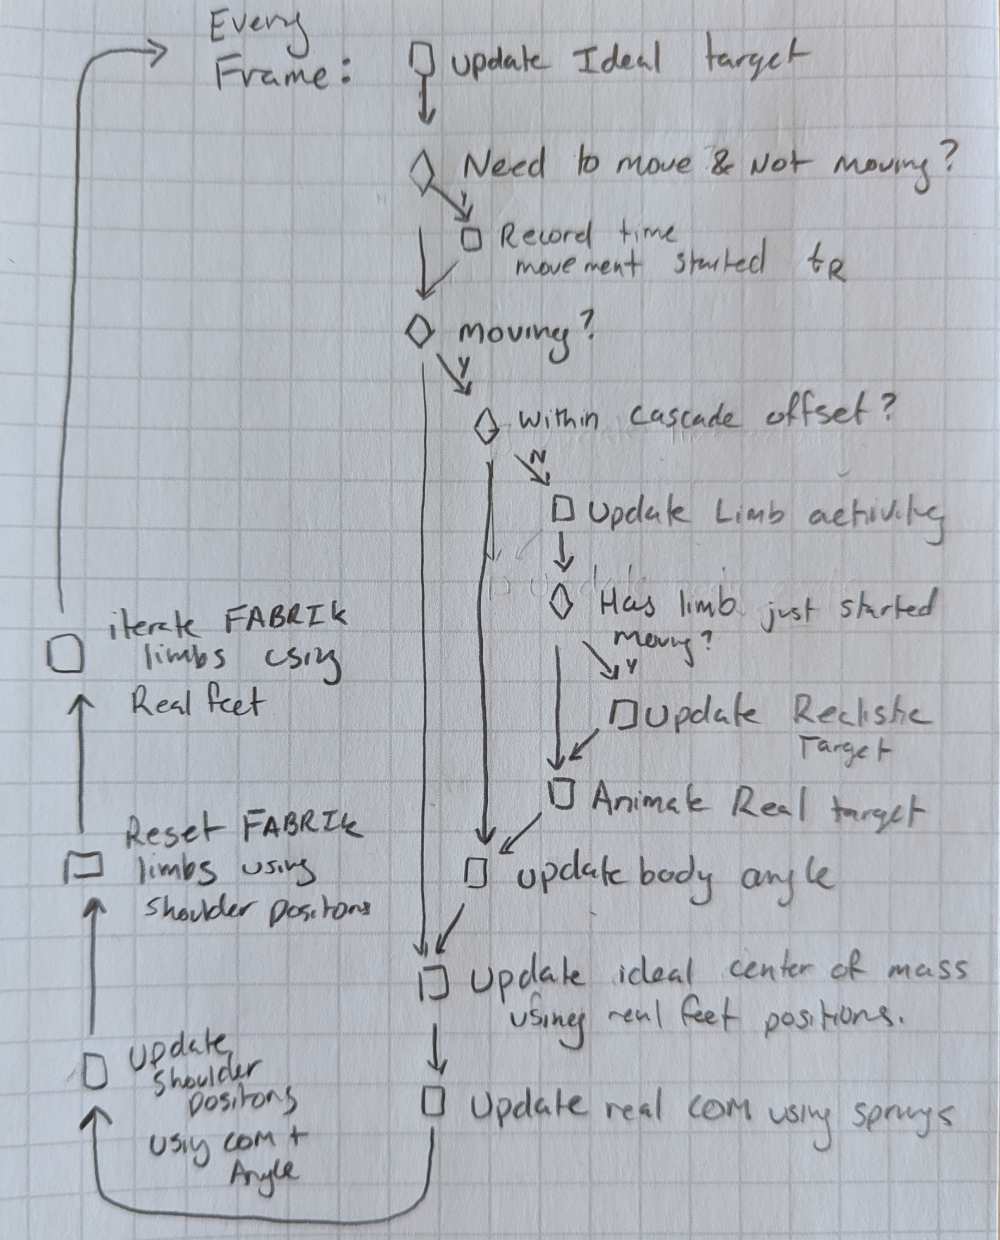 Every
Frame:
Update Ideal target
Need to move & Not moving?
Y
Record time
movement started tR
moving?
Y
Within cascade offset?
N
Update Limb activity
Has limb just started
moving?
Y
Update Realistic
Target
Animate Real target
update body angle
Update ideal center of mass
using real feet positions.
Update real COM using springs
Update
shoulder
positions
using COM +
Angle
Reset FABRIK
limbs using
shoulder positons
iterate FABRIK
limbs using
Real feet